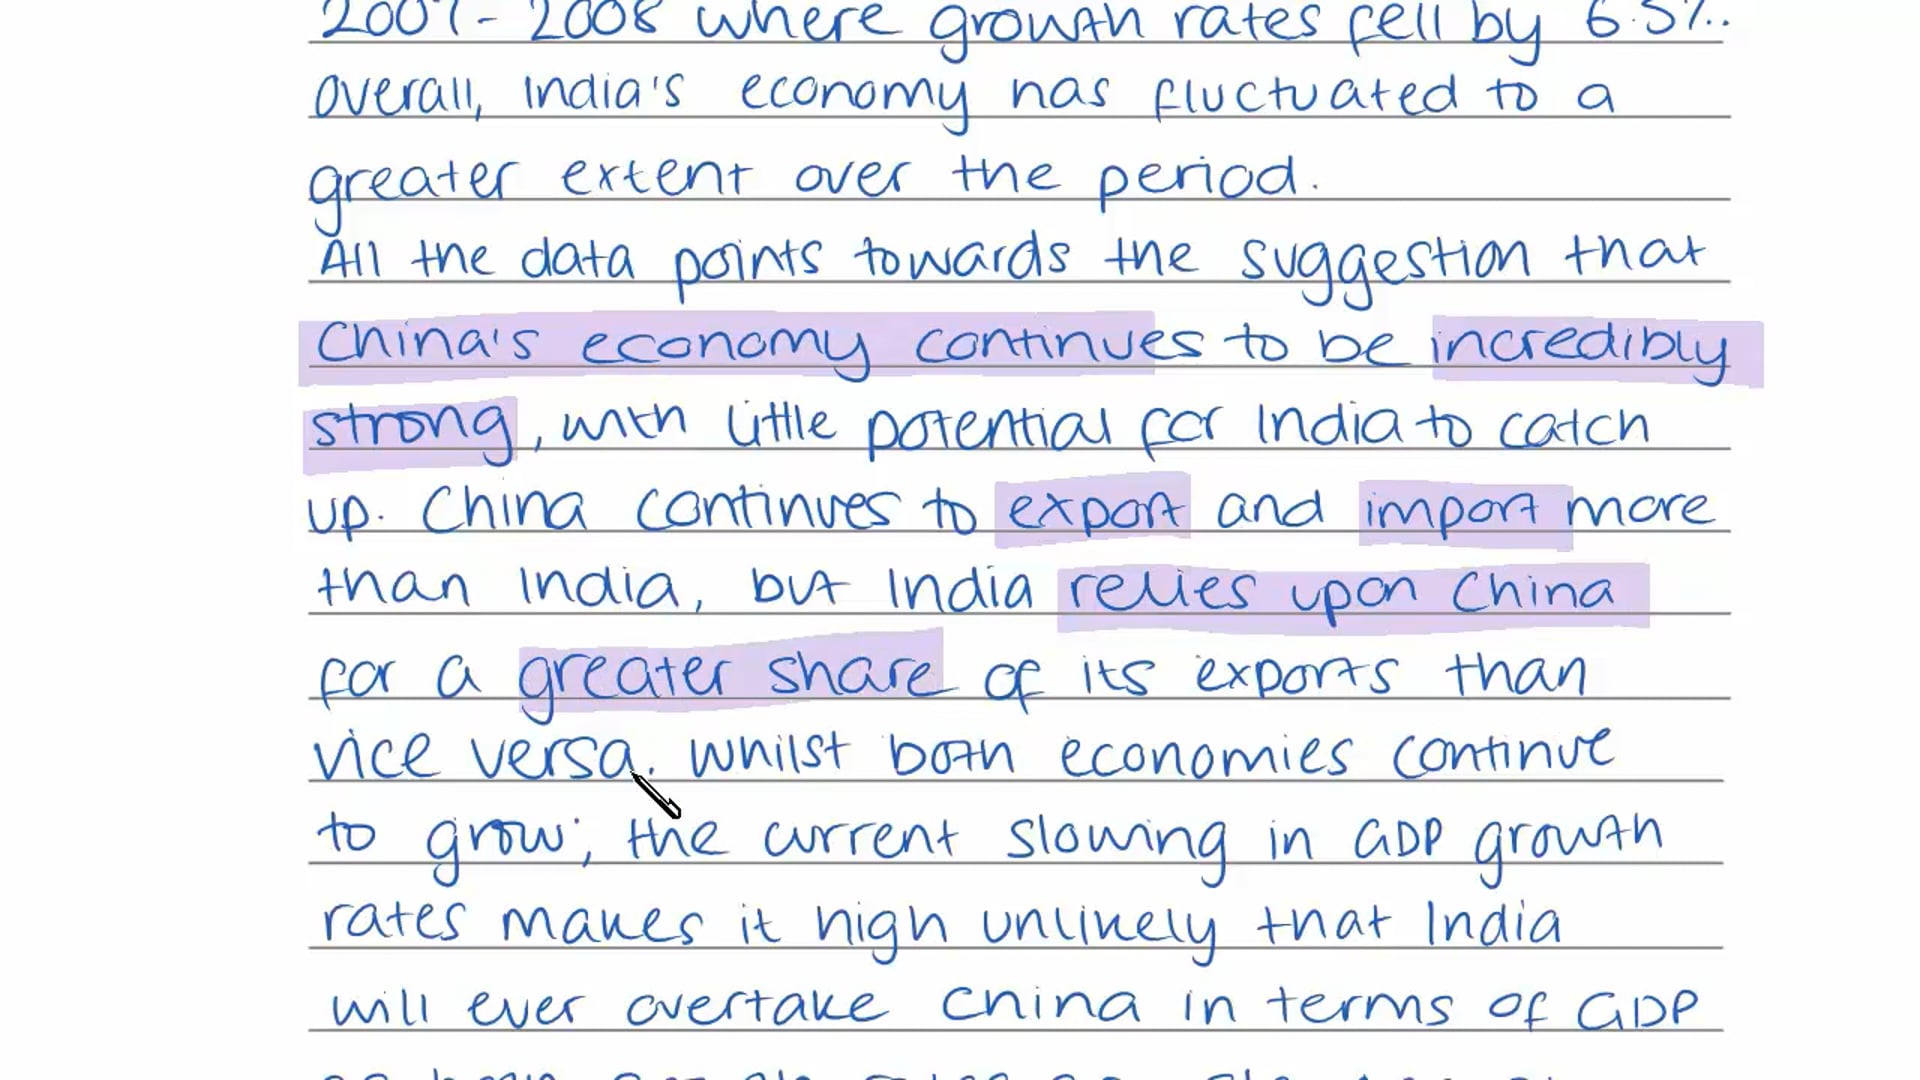 2007-2008 where growth rates fell by 6.5%.
overall, India's economy has fluctuated to a
greater extent over the period.
All the data points towards the suggestion that
China's economy continues to be incredibly
strong, with little potential for India to catch
up. China continues to export and import more
than India, but India relies upon China
for a greater share of its exports than
vice versa. whilst both economies continue
to grow; the current slowing in GDP growth
rates makes it high unlikely that India
will ever overtake China in terms of GDP